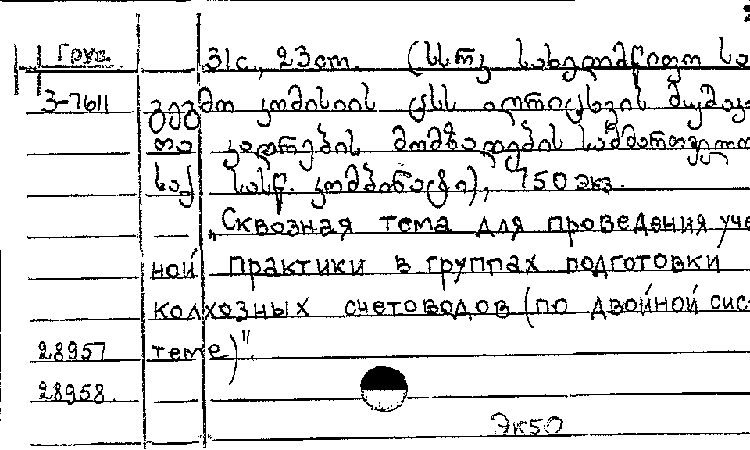 Груз. 31с., 23cm. (სსრკ სახელმწიფო სა
3-7611 გეგმო კომისიის ცსს აღრიცხვის მუშაკ
თა კადრების მომზადების სამმართველო
საქ სასწ. კომბინატი), 750 экз.
„Сквозная тема для проведения учеб
ной практики в группах подготовки
колхозных счетоводов (по двойной сис
28957 теме)"
28958.
Эк50